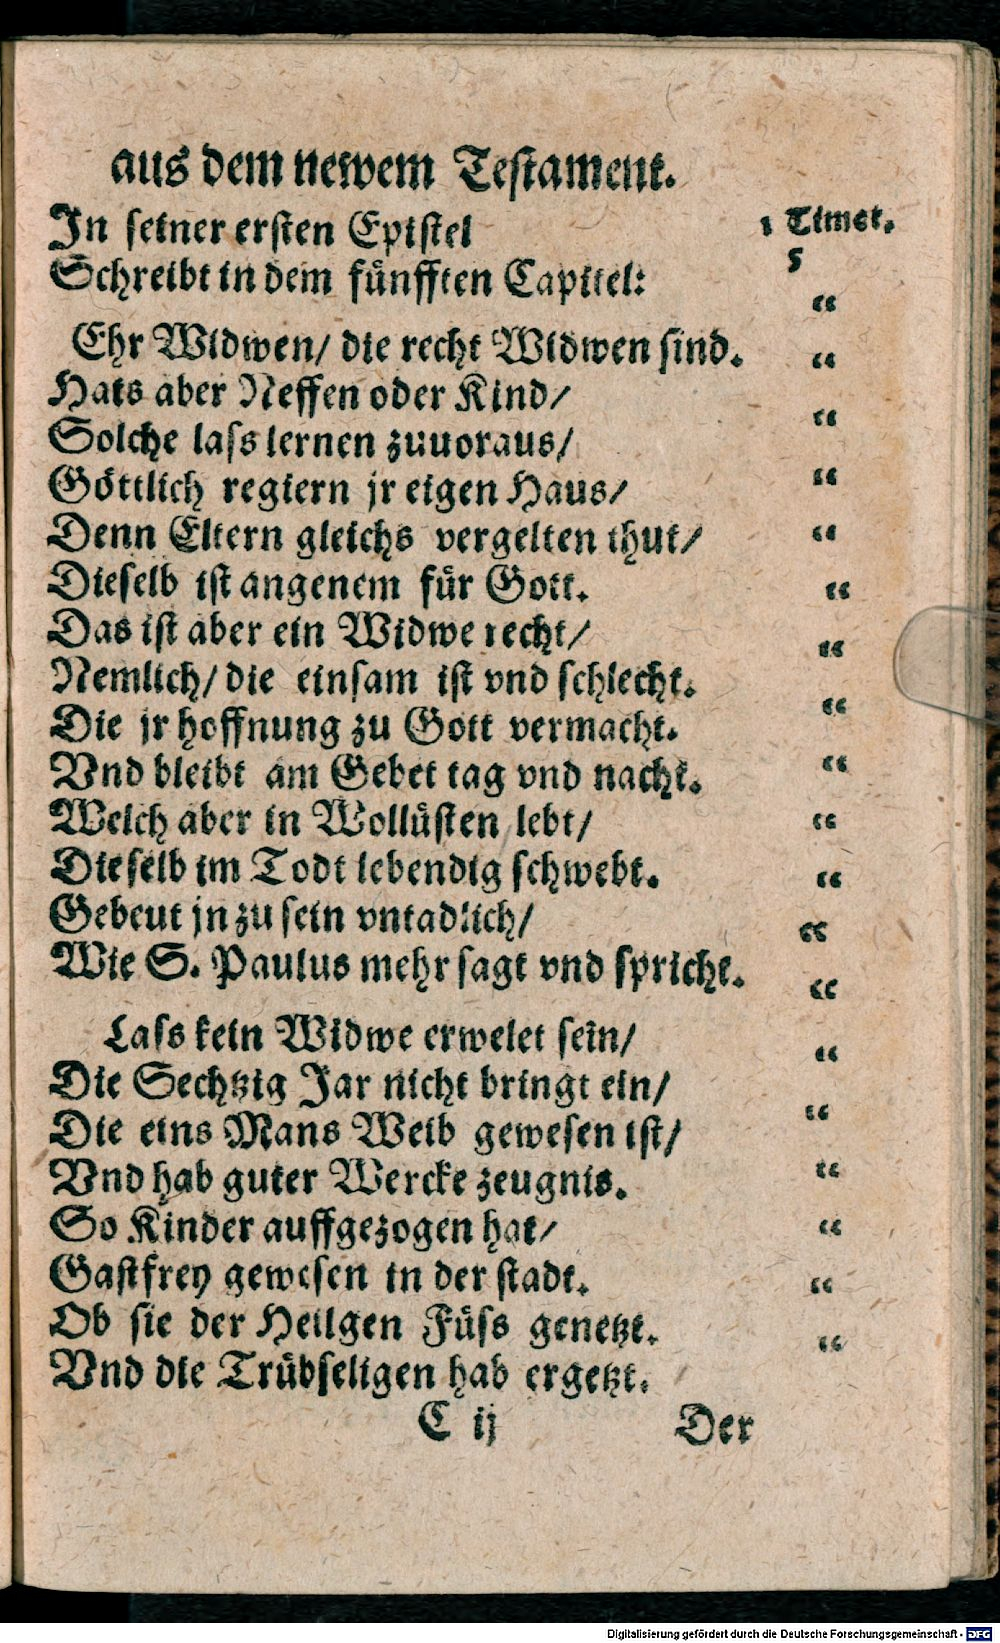 aus dem newem Testament.
In seiner ersten Epistel 1 Timot.
Schreibt in dem fünfften Capittel: 5
“
Ehr Widwen/ die recht Widwen sind. “
Hats aber Neffen oder Kind/ “
Solche lass lernen zuuoraus/
Göttlich regiern jr eigen Haus/ “
Denn Eltern gleichs vergelten thut/ “
Dieselb ist angenem für Gott. “
Das ist aber ein Widwe recht/ “
Nemlich/ die einsam ist vnd schlecht. “
Die jr hoffnung zu Gott vermacht.
Vnd bleibt am Gebet tag vnd nacht. “
Welch aber in Wollüsten lebt/ “
Dieselb im Todt lebendig schwebt. “
Gebeut jn zu sein vntadlich/ “
Wie S. Paulus mehr sagt vnd spricht. “
Lass kein Widwe erwelet sein/ “
Die Sechtzig Jar nicht bringt ein/
Die eins Mans Weib gewesen ist/ “
Vnd hab guter Wercke zeugnis. “
So Kinder auffgezogen hat/ “
Gastfrey gewesen in der stadt. “
Ob sie der Heilgen Füss genetzt. “
Vnd die Trübseligen hab ergetzt.
C ij Der
Digitalisierung gefördert durch die Deutsche Forschungsgemeinschaft - DFG